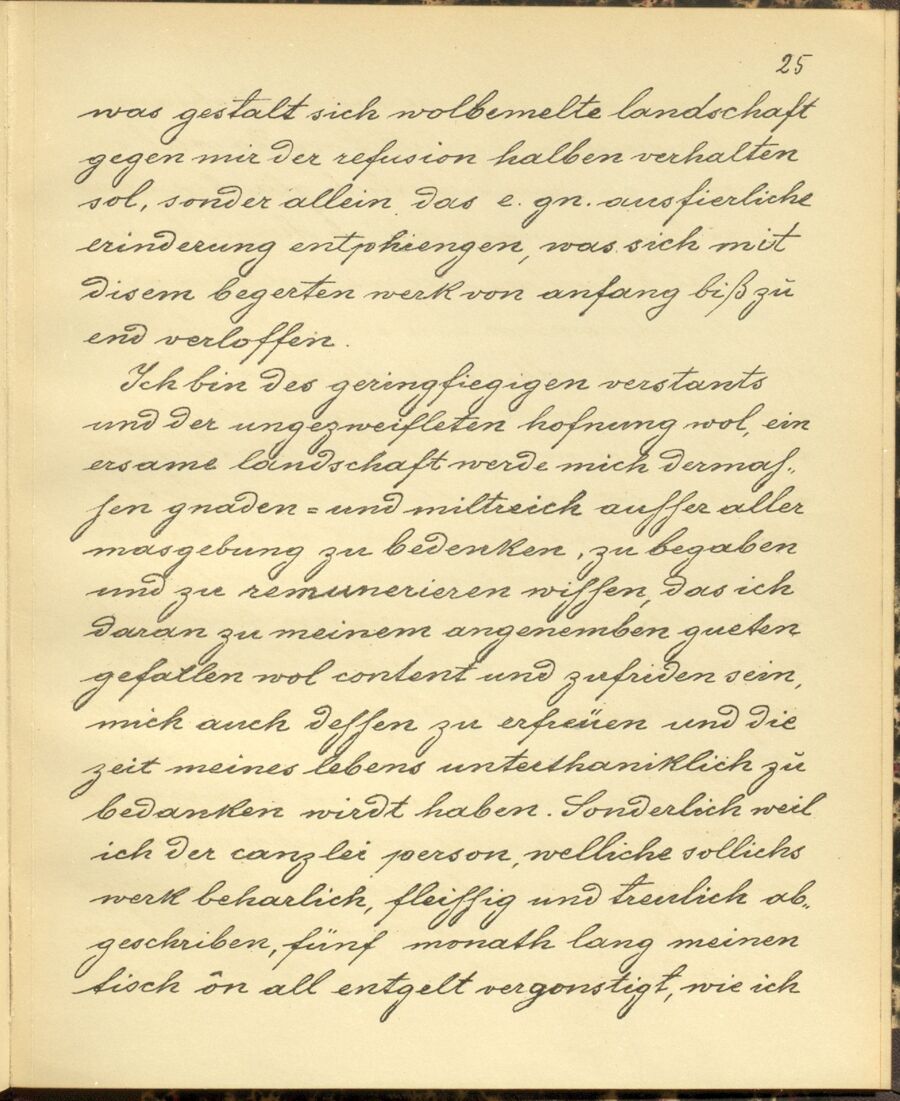 25
was gestalt sich wolbemelte landschaft
gegen mir der refusion halben verhalten
sol, sonder allein das e. gn. ausfierliche
erinderung entphiengen, was sich mit
disem begerten werk von anfang biß zů
end verloffen.
Ich bin des geringfiegigen verstants
und der ungezweifleten hofnung wol, ein
ersame landschaft werde mich dermas„
sen gnaden = und miltreich ausser aller
masgebung zu bedenken, zu begaben
und zu remunerieren wissen, das ich
daran zu meinem angenemben gueten
gefallen wol content und zufriden sein,
mich auch dessen zu erfreüen und die
zeit meines lebens unterthaniklich zů
bedanken wirdt haben. Sonderlich weil
ich der canzlei person, welliche sollichs
werk beharlich, fleissig und treulich ab„
geschriben, fünf monath lang meinen
tisch ôn all entgelt vergonstigt, wie ich